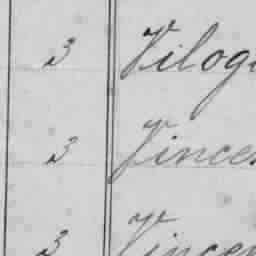 3 Vilog
3 Vince
3 Vince